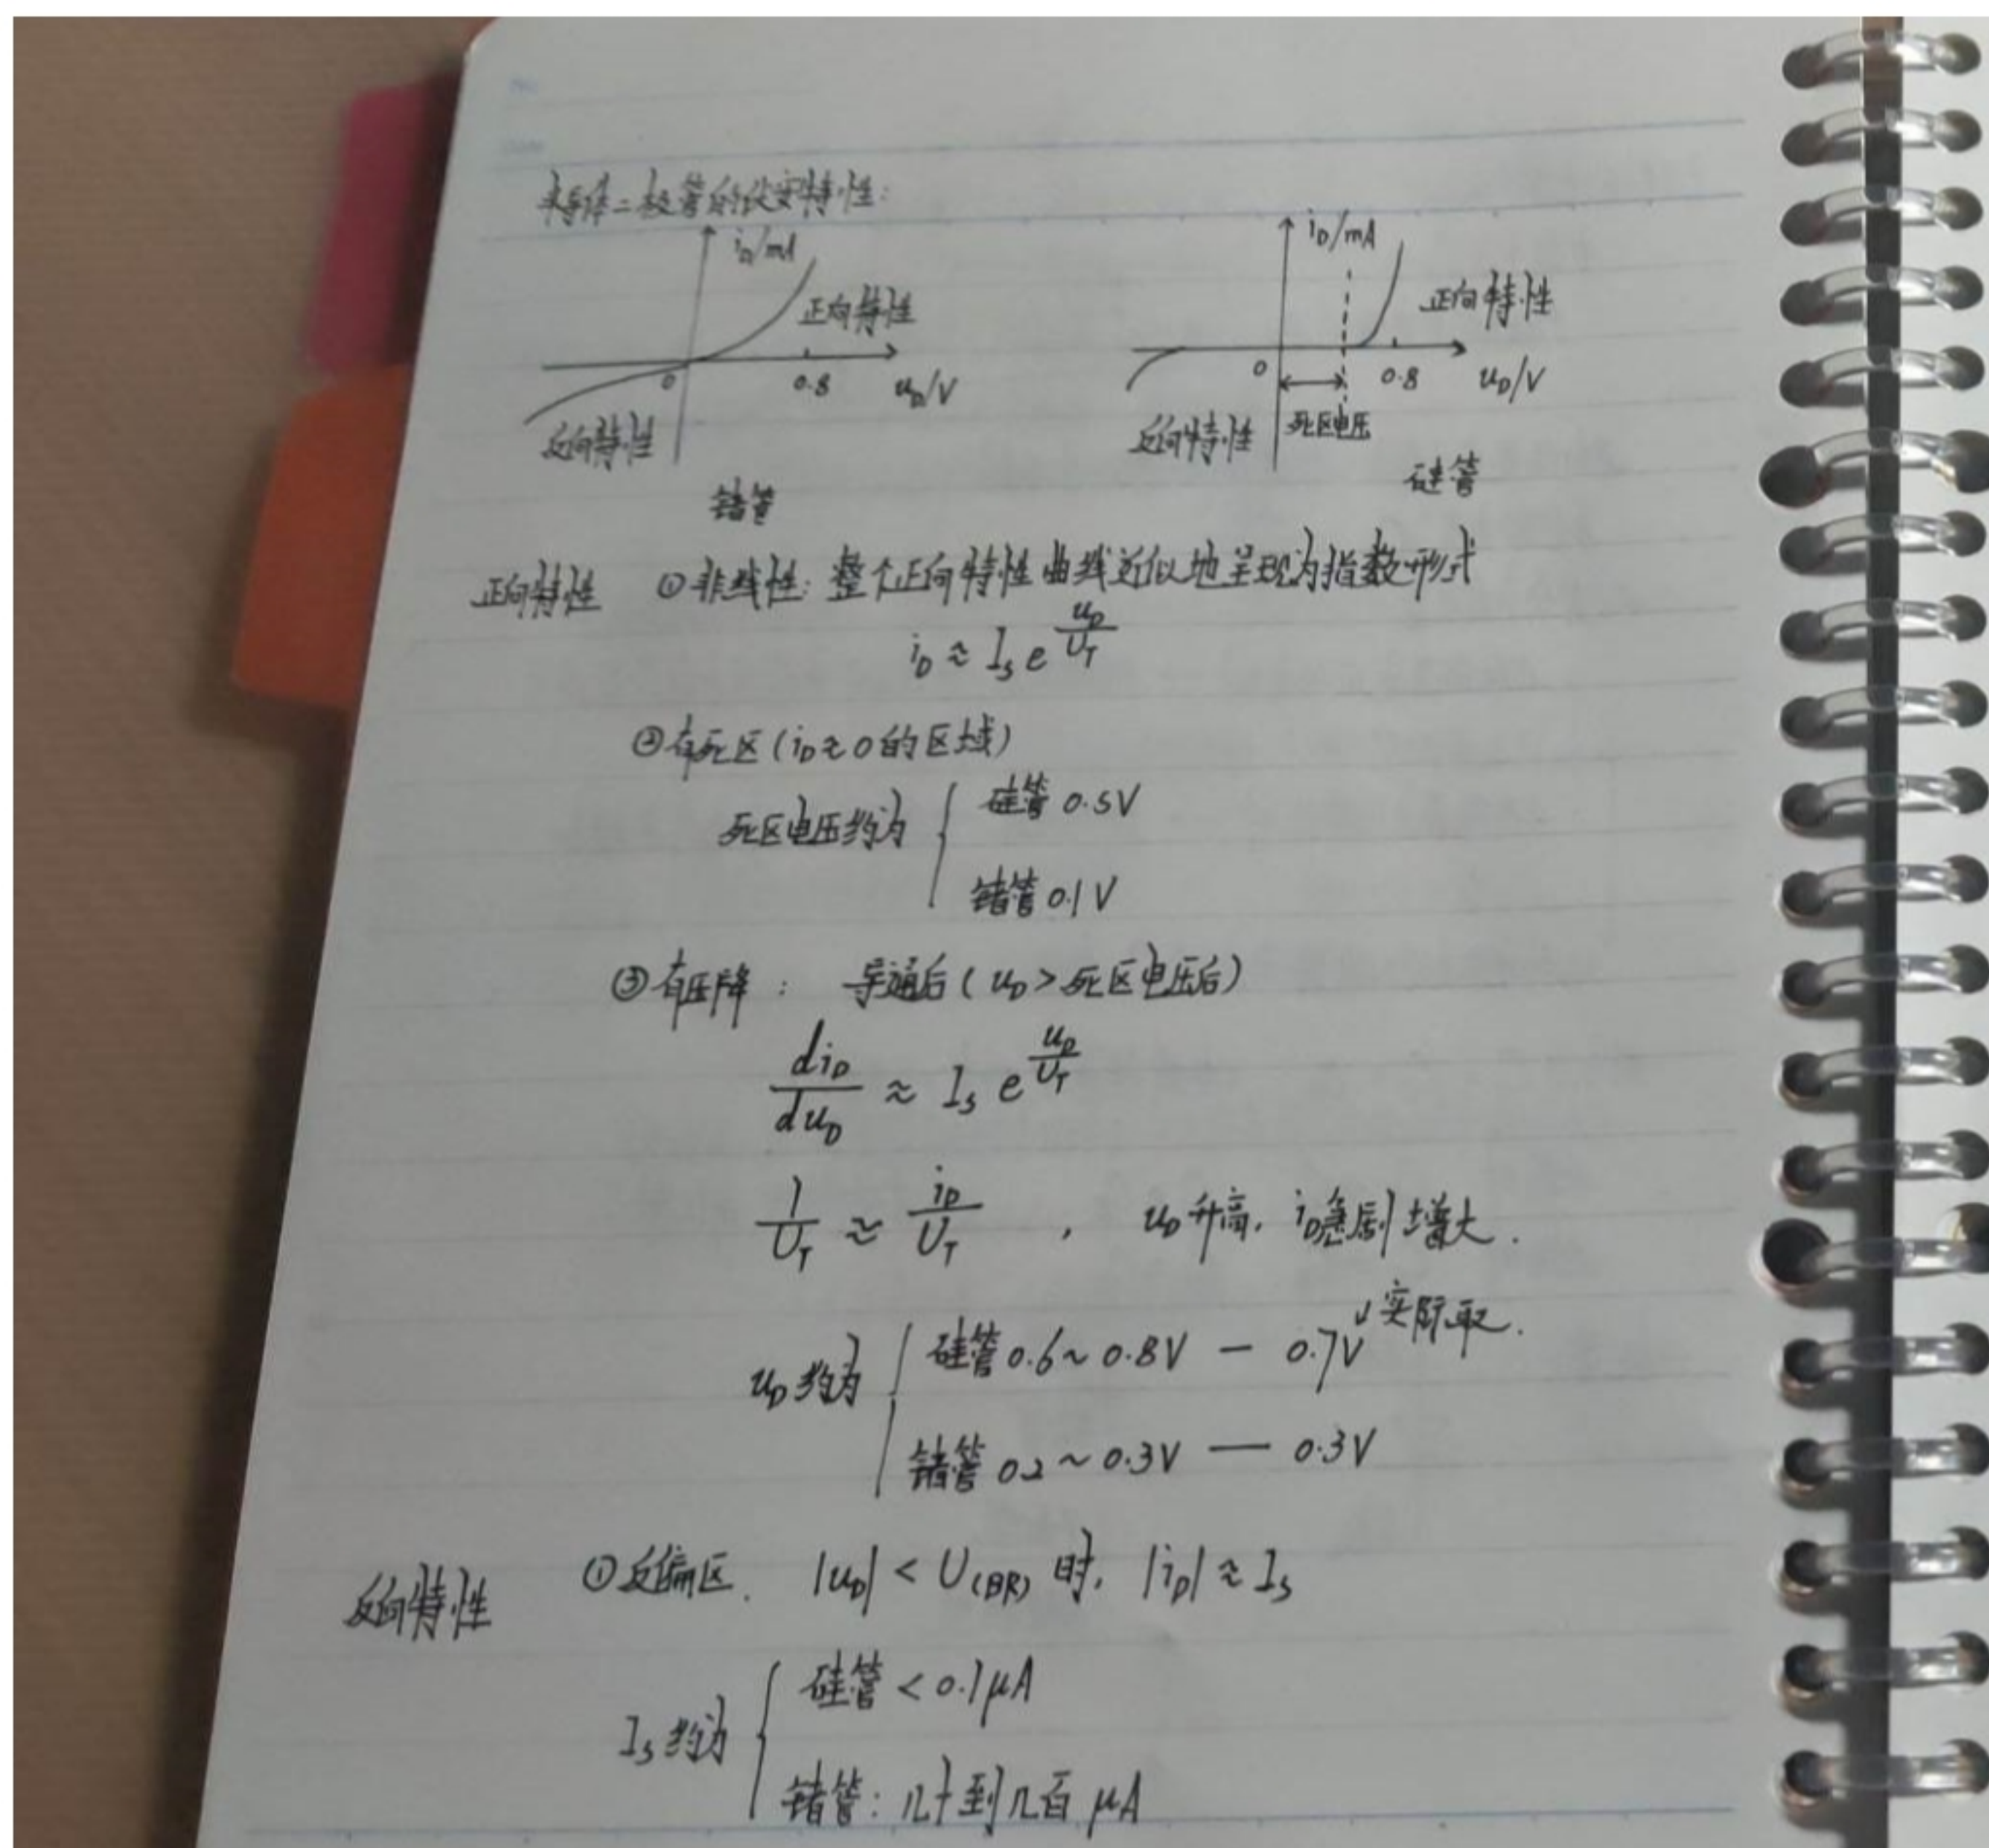 半导体二极管的伏安特性：
i_D/mA
正向特性
0 0.8 u_D/V
反向特性
锗管
i_D/mA
正向特性
0 0.8 u_D/V
反向特性 死区电压
硅管
正向特性 ①非线性：整个正向特性曲线近似地呈现为指数形式
i_D ≈ I_s e^{u_D/U_T}
②有死区(i_D≈0的区域)
死区电压约为 { 硅管 0.5V
锗管 0.1V
③有压降： 导通后(u_D>死区电压后)
di_D/du_D ≈ I_s e^{u_D/U_T}
1/U_T ≈ i_D/U_T ， u_D升高，i_D急剧增大.
↓实际取.
u_D约为 { 硅管 0.6~0.8V — 0.7V
锗管 0.2~0.3V — 0.3V
反向特性 ①反偏区. |u_D| < U_(BR) 时, |i_D| ≈ I_s
I_s约为 { 硅管 < 0.1μA
锗管：几十到几百 μA